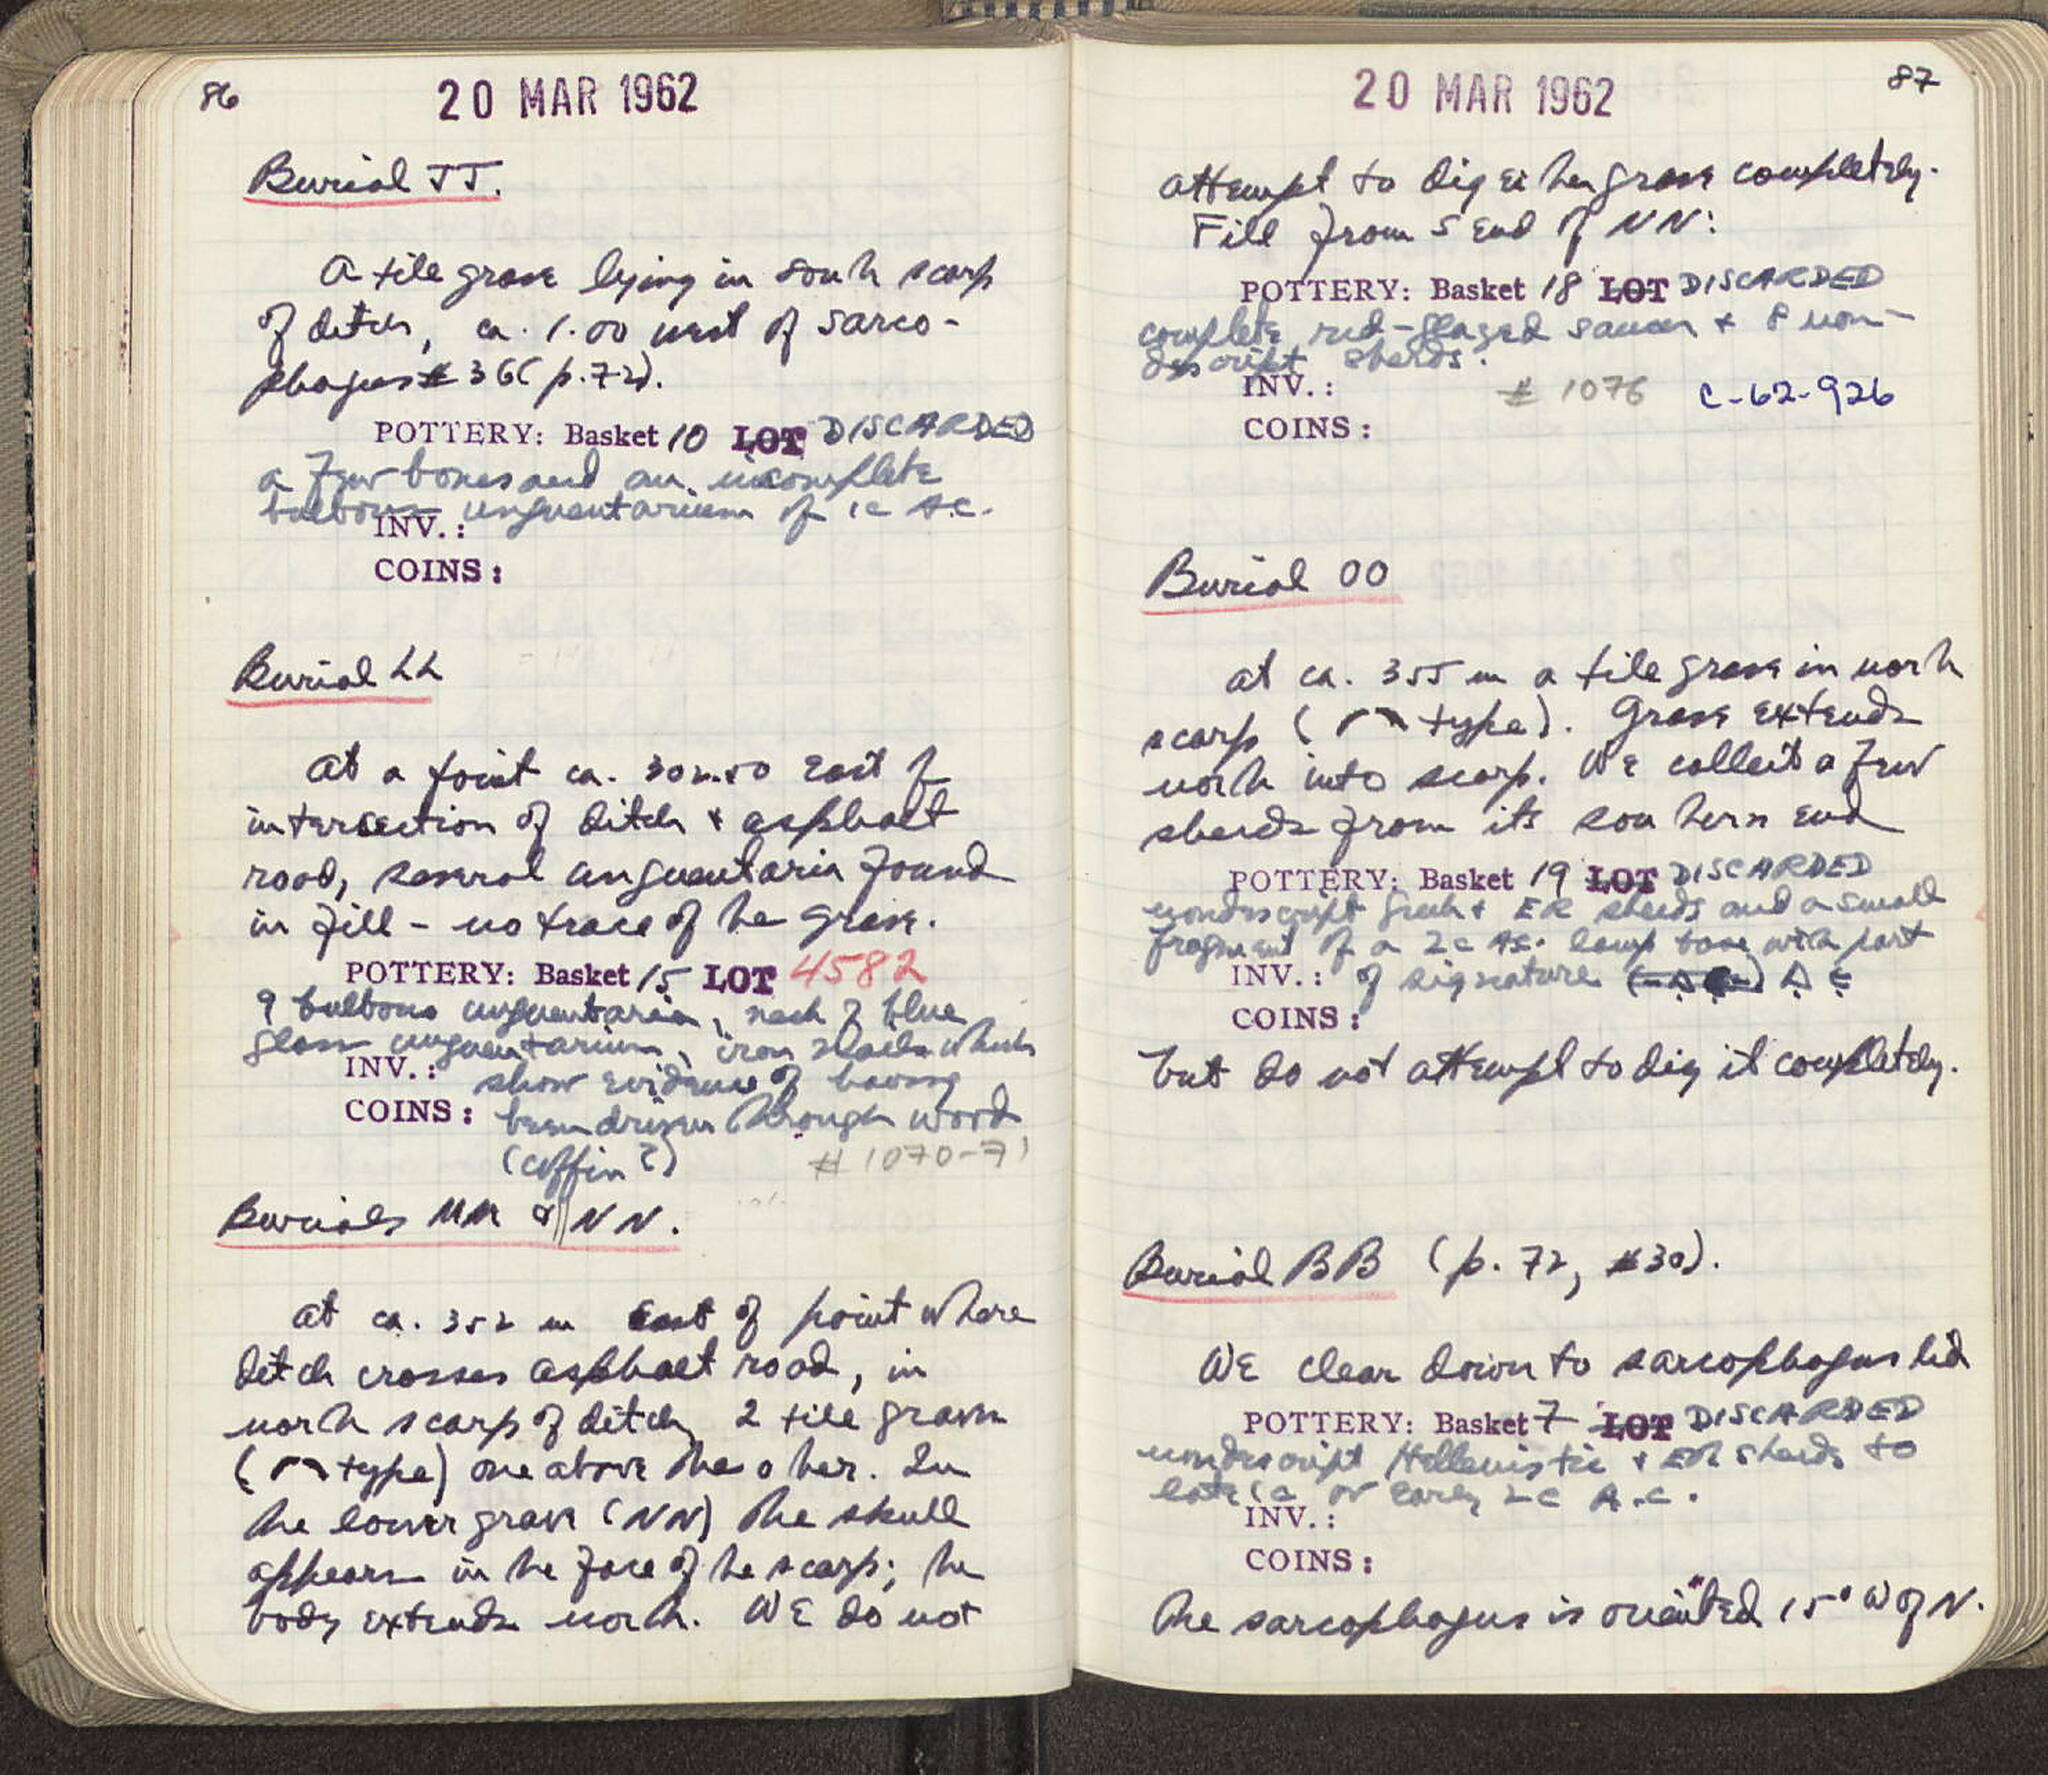 86
20 MAR 1962
Burial JJ.
A tile grave lying in south scarp
of ditch, ca. 1.00 west of sarco-
phagus # 36 (p. 72).
POTTERY: Basket 10 LOT DISCARDED
a few bones and an incomplete
bulbous unguentarium of 1c A.C.
INV.:
COINS:
Burial LL
At a point ca. 302.50 east of
intersection of ditch + asphalt
road, several unguentaria found
in fill - no trace of the grave.
POTTERY: Basket 15 LOT 4582
9 bulbous unguentaria, neck of blue
glass unguentarium, iron nails which
INV.: show evidence of having
COINS: been driven through wood
(coffin?) # 1070-71
Burials MM & NN.
At ca. 352 m east of point where
ditch crosses asphalt road, in
north scarp of ditch 2 tile graves
( type) one above the other. In
the lower grave (NN) the skull
appears in the face of the scarp; the
body extends north. We do not
87
20 MAR 1962
attempt to dig either grave completely.
Fill from S end of NN:
POTTERY: Basket 18 LOT DISCARDED
complete red-glazed saucer + 8 non-
descript sherds.
INV.: # 1076 C-62-926
COINS:
Burial OO
At ca. 355 m a tile grave in north
scarp ( type). Grave extends
north into scarp. We collect a few
sherds from its southern end
POTTERY: Basket 19 LOT DISCARDED
nondescript Greek + ER sherds and a small
fragment of a 2c A.C. lamp base with part
INV.: of signature Α Ε
COINS:
but do not attempt to dig it completely.
Burial BB (p. 72, #30).
We clear down to sarcophagus lid
POTTERY: Basket 7 LOT DISCARDED
nondescript Hellenistic + ER sherds to
late 1c or early 2c A.C.
INV.:
COINS:
The sarcophagus is oriented 15° W of N.